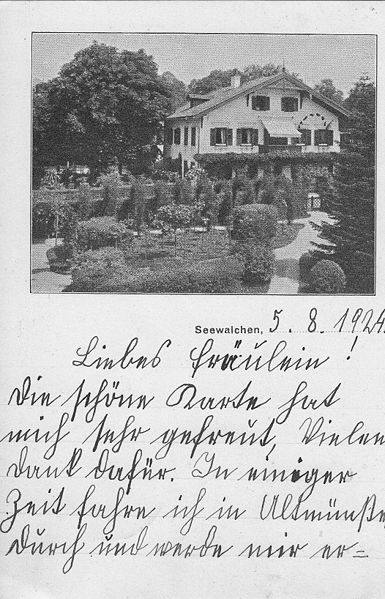 Seewalchen, 5. 8. 1924.
Liebes Fräulein!
Die schöne Karte hat
mich sehr gefreut, Vielen
Dank dafür. In einiger
Zeit fahre ich in Altmünster
durch und werde mir er=